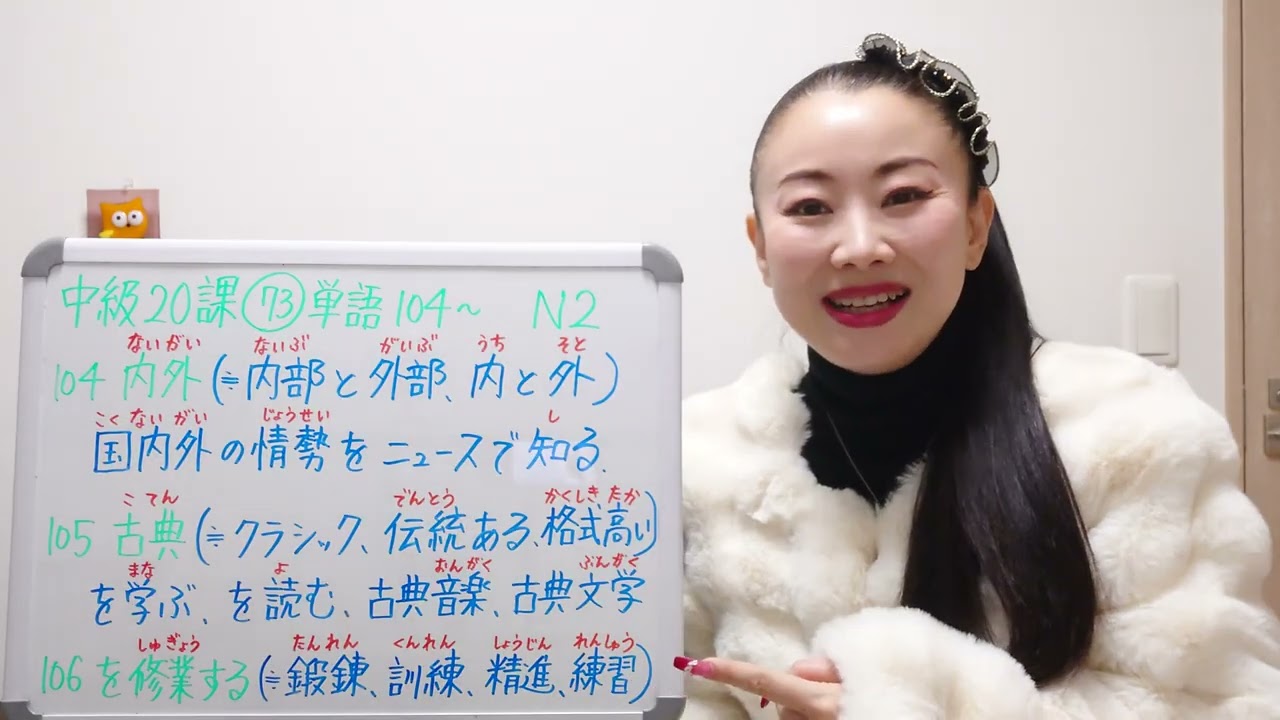 中級20課㊳単語104~ N2
ないがい ないぶ がいぶ うち そと
104 内外(≒内部と外部、内と外)
こくないがい じょうせい し
国内外の情勢をニュースで知る.
こてん でんとう かくしきたか
105 古典(≒クラシック、伝統ある、格式高い)
まな よ おんがく ぶんがく
を学ぶ、を読む、古典音楽、古典文学
しゅぎょう たんれん くんれん しょうじん れんしゅう
106 を修業する(≒鍛錬、訓練、精進、練習)